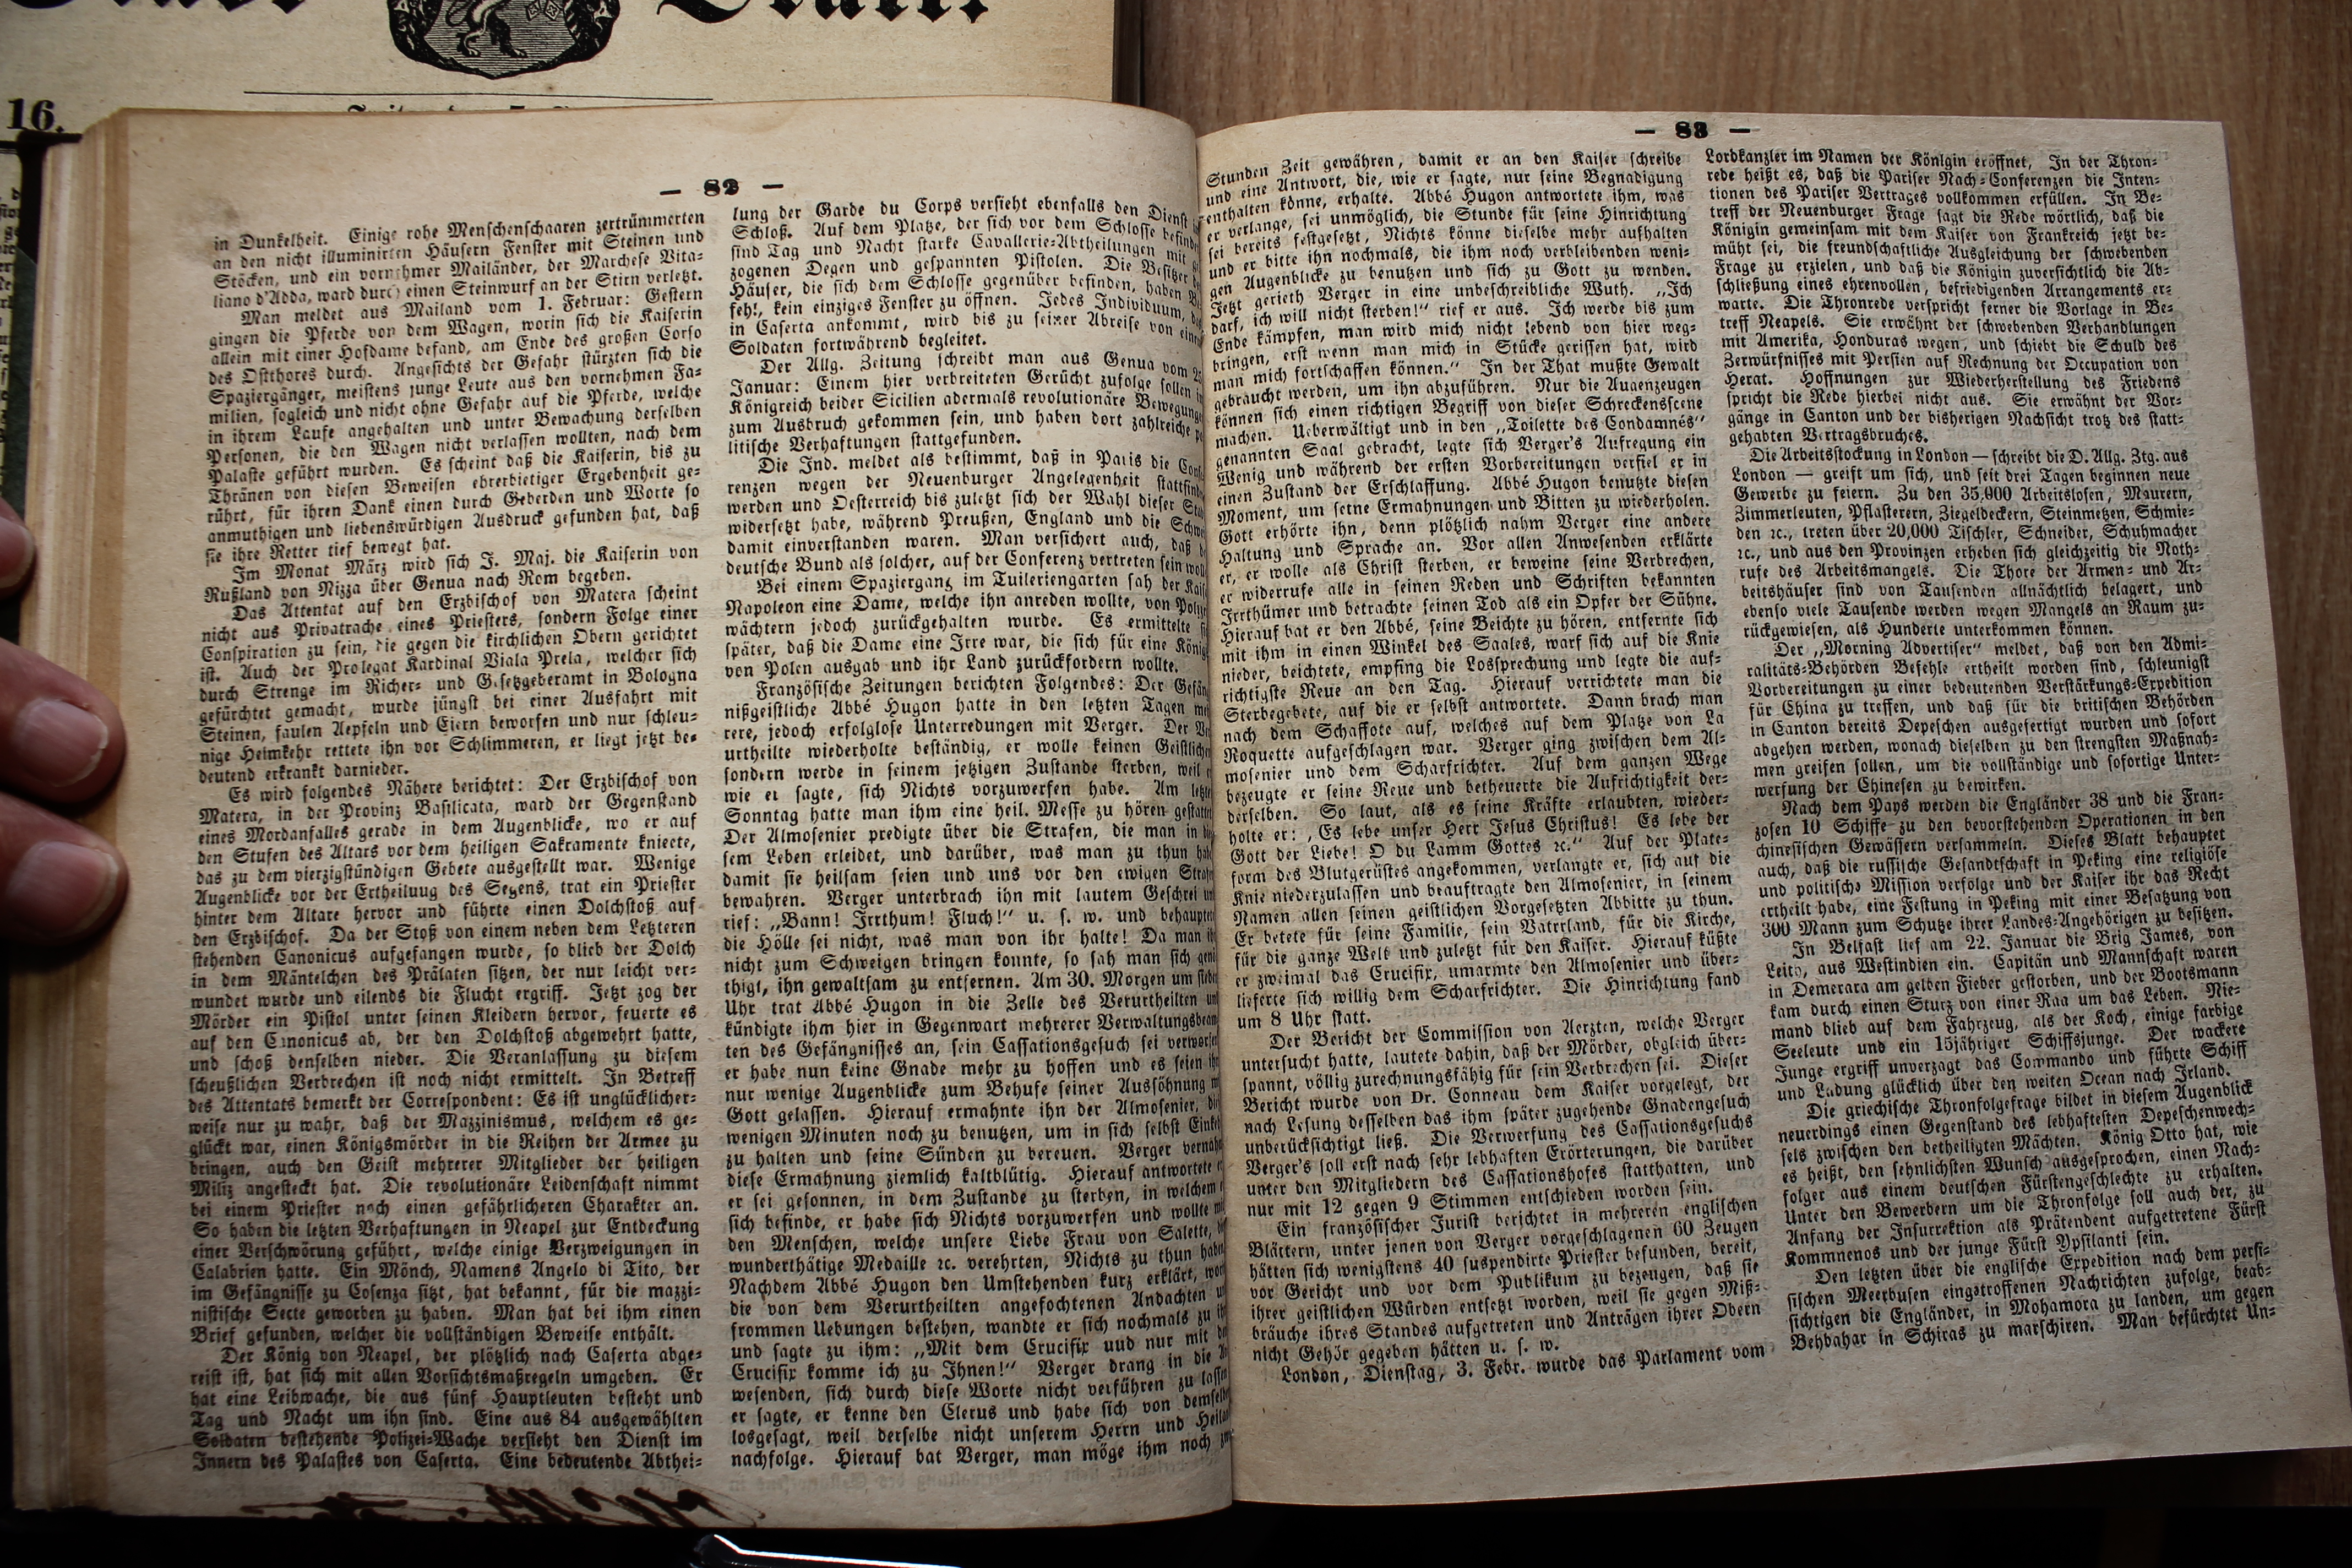 16.
— 82 —
in Dunkelheit. Einige rohe Menschenschaaren zertrümmerten
an den nicht illuminirten Häusern Fenster mit Steinen und
Stöcken, und ein vornehmer Mailänder, der Marchese Vita-
liano d'Adda, ward durch einen Steinwurf an der Stirn verletzt.
Man meldet aus Mailand vom 1. Februar: Gestern
gingen die Pferde von dem Wagen, worin sich die Kaiserin
allein mit einer Hofdame befand, am Ende des großen Corso
des Ostthores durch. Angesichts der Gefahr stürzten sich die
Spaziergänger, meistens junge Leute aus den vornehmen Fa-
milien, sogleich und nicht ohne Gefahr auf die Pferde, welche
in ihrem Laufe angehalten und unter Bewachung derselben
Personen, die den Wagen nicht verlassen wollten, nach dem
Palaste geführt wurden. Es scheint daß die Kaiserin, bis zu
Thränen von diesen Beweisen ehrerbietiger Ergebenheit ge-
rührt, für ihren Dank einen durch Geberden und Worte so
anmuthigen und liebenswürdigen Ausdruck gefunden hat, daß
sie ihre Retter tief bewegt hat.
Im Monat März wird sich J. Maj. die Kaiserin von
Rußland von Nizza über Genua nach Rom begeben.
Das Attentat auf den Erzbischof von Matera scheint
nicht aus Privatrache eines Priesters, sondern Folge einer
Conspiration zu sein, die gegen die kirchlichen Obern gerichtet
ist. Auch der Prolegat Kardinal Viala Prela, welcher sich
durch Strenge im Richer- und Gesetzgeberamt in Bologna
gefürchtet gemacht, wurde jüngst bei einer Ausfahrt mit
Steinen, faulen Aepfeln und Eiern beworfen und nur schleu-
nige Heimkehr rettete ihn vor Schlimmeren, er liegt jetzt be-
deutend erkrankt darnieder.
Es wird folgendes Nähere berichtet: Der Erzbischof von
Matera, in der Provinz Basilicata, ward der Gegenstand
eines Mordanfalles gerade in dem Augenblicke, wo er auf
den Stufen des Altars vor dem heiligen Sakramente kniete,
das zu dem vierzigstündigen Gebete ausgestellt war. Wenige
Augenblicke vor der Ertheilung des Segens, trat ein Priester
hinter dem Altare hervor und führte einen Dolchstoß auf
den Erzbischof. Da der Stoß von einem neben dem Letzteren
stehenden Canonicus aufgefangen wurde, so blieb der Dolch
in dem Mäntelchen des Prälaten sitzen, der nur leicht ver-
wundet wurde und eilends die Flucht ergriff. Jetzt zog der
Mörder ein Pistol unter seinen Kleidern hervor, feuerte es
auf den Canonicus ab, der den Dolchstoß abgewehrt hatte,
und schoß denselben nieder. Die Veranlassung zu diesem
scheußlichen Verbrechen ist noch nicht ermittelt. In Betreff
des Attentats bemerkt der Correspondent: Es ist unglücklicher-
weise nur zu wahr, daß der Mazzinismus, welchem es ge-
glückt war, einen Königsmörder in die Reihen der Armee zu
bringen, auch den Geist mehrerer Mitglieder der heiligen
Miliz angesteckt hat. Die revolutionäre Leidenschaft nimmt
bei einem Priester noch einen gefährlicheren Charakter an.
So haben die letzten Verhaftungen in Neapel zur Entdeckung
einer Verschwörung geführt, welche einige Verzweigungen in
Calabrien hatte. Ein Mönch, Namens Angelo di Tito, der
im Gefängnisse zu Cosenza sitzt, hat bekannt, für die mazzi-
nistische Secte geworben zu haben. Man hat bei ihm einen
Brief gefunden, welcher die vollständigen Beweise enthält.
Der König von Neapel, der plötzlich nach Caserta abge-
reist ist, hat sich mit allen Vorsichtsmaßregeln umgeben. Er
hat eine Leibwache, die aus fünf Hauptleuten besteht und
Tag und Nacht um ihn sind. Eine aus 84 ausgewählten
Soldaten bestehende Polizei-Wache versieht den Dienst im
Innern des Palastes von Caserta. Eine bedeutende Abthei-
lung der Garde du Corps versieht ebenfalls den Dienst
Schloß. Auf dem Platze, der sich vor dem Schlosse
sind Tag und Nacht starke Cavallerie-Abtheilungen mit
zogenen Degen und gespannten Pistolen. Die Besitzer
Häuser, die sich dem Schlosse gegenüber befinden, haben
fehl, kein einziges Fenster zu öffnen. Jedes Individuum,
in Caserta ankommt, wird bis zu seiner Abreise von
Soldaten fortwährend begleitet.
Der Allg. Zeitung schreibt man aus Genua vom
Januar: Einem hier verbreiteten Gerücht zufolge sollen
Königreich beider Sicilien abermals revolutionäre
zum Ausbruch gekommen sein, und haben dort zahlreiche
litische Verhaftungen stattgefunden.
Die Ind. meldet als bestimmt, daß in Paris die
renzen wegen der Neuenburger Angelegenheit
werden und Oesterreich bis zuletzt sich der Wahl dieser
widersetzt habe, während Preußen, England und die
damit einverstanden waren. Man versichert auch, daß
deutsche Bund als solcher, auf der Conferenz vertreten sein
Bei einem Spaziergang im Tuileriengarten sah der
Napoleon eine Dame, welche ihn anreden wollte, von
wächtern jedoch zurückgehalten wurde. Es ermittelte
später, daß die Dame eine Irre war, die sich für eine
von Polen ausgab und ihr Land zurückfordern wollte.
Französische Zeitungen berichten Folgendes: Der
nißgeistliche Abbé Hugon hatte in den letzten Tagen
rere, jedoch erfolglose Unterredungen mit Verger. Der
urtheilte wiederholte beständig, er wolle keinen
sondern werde in seinem jetzigen Zustande sterben, weil
wie er sagte, sich Nichts vorzuwerfen habe. Am
Sonntag hatte man ihm eine heil. Messe zu hören
Der Almosenier predigte über die Strafen, die man in
sem Leben erleidet, und darüber, was man zu thun
damit sie heilsam seien und uns vor den ewigen
bewahren. Verger unterbrach ihn mit lautem Geschrei
rief: „Bann! Irrthum! Fluch!“ u. s. w. und
die Hölle sei nicht, was man von ihr halte! Da man
nicht zum Schweigen bringen konnte, so sah man sich
thigt, ihn gewaltsam zu entfernen. Am 30. Morgen um
Uhr trat Abbé Hugon in die Zelle des Verurtheilten
kündigte ihm hier in Gegenwart mehrerer
ten des Gefängnisses an, sein Cassationsgesuch sei
er habe nun keine Gnade mehr zu hoffen und es seien
nur wenige Augenblicke zum Behufe seiner Aussöhnung
Gott gelassen. Hierauf ermahnte ihn der Almosenier,
wenigen Minuten noch zu benutzen, um in sich selbst
zu halten und seine Sünden zu bereuen. Verger
diese Ermahnung ziemlich kaltblütig. Hierauf antwortete
er sei gesonnen, in dem Zustande zu sterben, in welchem
sich befinde, er habe sich Nichts vorzuwerfen und wollte
den Menschen, welche unsere Liebe Frau von Salette,
wunderthätige Medaille ꝛc. verehrten, Nichts zu thun
Nachdem Abbé Hugon den Umstehenden kurz erklärt,
die von dem Verurtheilten angefochtenen Andachten
frommen Uebungen bestehen, wandte er sich nochmals zu
und sagte zu ihm: „Mit dem Crucifix uud nur mit
Crucifix komme ich zu Ihnen!“ Verger drang in die
wesenden, sich durch diese Worte nicht verführen zu
er sagte, er kenne den Clerus und habe sich von
losgesagt, weil derselbe nicht unserem Herrn und
nachfolge. Hierauf bat Verger, man möge ihm noch
— 83 —
Stunden Zeit gewähren, damit er an den Kaiser schreibe
und eine Antwort, die, wie er sagte, nur seine Begnadigung
enthalten könne, erhalte. Abbé Hugon antwortete ihm, was
er verlange, sei unmöglich, die Stunde für seine Hinrichtung
sei bereits festgesetzt, Nichts könne dieselbe mehr aufhalten
und er bitte ihn nochmals, die ihm noch verbleibenden weni-
gen Augenblicke zu benutzen und sich zu Gott zu wenden.
Jetzt gerieth Verger in eine unbeschreibliche Wuth. „Ich
darf, ich will nicht sterben!“ rief er aus. Ich werde bis zum
Ende kämpfen, man wird mich nicht lebend von hier weg-
bringen, erst wenn man mich in Stücke gerissen hat, wird
man mich fortschaffen können.“ In der That mußte Gewalt
gebraucht werden, um ihn abzuführen. Nur die Augenzeugen
können sich einen richtigen Begriff von dieser Schreckensscene
machen. Ueberwältigt und in den „Toilette des Condamnés“
genannten Saal gebracht, legte sich Verger's Aufregung ein
Wenig und während der ersten Vorbereitungen verfiel er in
einen Zustand der Erschlaffung. Abbé Hugon benutzte diesen
Moment, um seine Ermahnungen und Bitten zu wiederholen.
Gott erhörte ihn, denn plötzlich nahm Verger eine andere
Haltung und Sprache an. Vor allen Anwesenden erklärte
er, er wolle als Christ sterben, er beweine seine Verbrechen,
er widerrufe alle in seinen Reden und Schriften bekannten
Irrthümer und betrachte seinen Tod als ein Opfer der Sühne.
Hierauf bat er den Abbé, seine Beichte zu hören, entfernte sich
mit ihm in einen Winkel des Saales, warf sich auf die Knie
nieder, beichtete, empfing die Lossprechung und legte die auf-
richtigste Reue an den Tag. Hierauf verrichtete man die
Sterbegebete, auf die er selbst antwortete. Dann brach man
nach dem Schaffote auf, welches auf dem Platze von La
Roquette aufgeschlagen war. Verger ging zwischen dem Al-
mosenier und dem Scharfrichter. Auf dem ganzen Wege
bezeugte er seine Reue und betheuerte die Aufrichtigkeit der-
derselben. So laut, als es seine Kräfte erlaubten, wieder-
holte er: „Es lebe unser Herr Jesus Christus! Es lebe der
Gott der Liebe! O du Lamm Gottes ꝛc.“ Auf der Plate-
form des Blutgerüstes angekommen, verlangte er, sich auf die
Knie niederzulassen und beauftragte den Almosenier, in seinem
Namen allen seinen geistlichen Vorgesetzten Abbitte zu thun.
Er betete für seine Familie, sein Vaterland, für die Kirche,
für die ganze Welt und zuletzt für den Kaiser. Hierauf küßte
er zweimal das Crucifix, umarmte den Almosenier und über-
lieferte sich willig dem Scharfrichter. Die Hinrichtung fand
um 8 Uhr statt.
Der Bericht der Commission von Aerzten, welche Verger
untersucht hatte, lautete dahin, daß der Mörder, obgleich über-
spannt, völlig zurechnungsfähig für sein Verbrechen sei. Dieser
Bericht wurde von Dr. Conneau dem Kaiser vorgelegt, der
nach Lesung desselben das ihm später zugehende Gnadengesuch
unberücksichtigt ließ. Die Verwerfung des Cassationsgesuchs
Verger's soll erst nach sehr lebhaften Erörterungen, die darüber
unter den Mitgliedern des Cassationshofes statthatten, und
nur mit 12 gegen 9 Stimmen entschieden worden sein.
Ein französischer Jurist berichtet in mehreren englischen
Blättern, unter jenen von Verger vorgeschlagenen 60 Zeugen
hätten sich wenigstens 40 suspendirte Priester befunden, bereit,
vor Gericht und vor dem Publikum zu bezeugen, daß sie
ihrer geistlichen Würden entsetzt worden, weil sie gegen Miß-
bräuche ihres Standes aufgetreten und Anträgen ihrer Obern
nicht Gehör gegeben hätten u. s. w.
London, Dienstag, 3. Febr. wurde das Parlament vom
Lordkanzler im Namen der Königin eröffnet, In der Thron-
rede heißt es, daß die Pariser Nach-Conferenzen die Inten-
tionen des Pariser Vertrages vollkommen erfüllen. In Be-
treff der Neuenburger Frage sagt die Rede wörtlich, daß die
Königin gemeinsam mit dem Kaiser von Frankreich jetzt be-
müht sei, die freundschaftliche Ausgleichung der schwebenden
Frage zu erzielen, und daß die Königin zuversichtlich die Ab-
schließung eines ehrenvollen, befriedigenden Arrangements er-
warte. Die Thronrede verspricht ferner die Vorlage in Be-
treff Neapels. Sie erwähnt der schwebenden Verhandlungen
mit Amerika, Honduras wegen, und schiebt die Schuld des
Zerwürfnisses mit Persien auf Rechnung der Occupation von
Herat. Hoffnungen zur Wiederherstellung des Friedens
spricht die Rede hierbei nicht aus. Sie erwähnt der Vor-
gänge in Canton und der bisherigen Nachsicht trotz des statt-
gehabten Vertragsbruches.
Die Arbeitsstockung in London — schreibt die D. Allg. Ztg. aus
London — greift um sich, und seit drei Tagen beginnen neue
Gewerbe zu feiern. Zu den 35,000 Arbeitslosen, Maurern,
Zimmerleuten, Pflasterern, Ziegeldeckern, Steinmetzen, Schmie-
den ꝛc., treten über 20,000 Tischler, Schneider, Schuhmacher
ꝛc., und aus den Provinzen erheben sich gleichzeitig die Noth-
rufe des Arbeitsmangels. Die Thore der Armen- und Ar-
beitshäuser sind von Tausenden allnächtlich belagert, und
ebenso viele Tausende werden wegen Mangels an Raum zu-
rückgewiesen, als Hunderte unterkommen können.
Der „Morning Advertiser“ meldet, daß von den Admi-
ralitäts-Behörden Befehle ertheilt worden sind, schleunigst
Vorbereitungen zu einer bedeutenden Verstärkungs-Expedition
für China zu treffen, und daß für die britischen Behörden
in Canton bereits Depeschen ausgefertigt wurden und sofort
abgehen werden, wonach dieselben zu den strengsten Maßnah-
men greifen sollen, um die vollständige und sofortige Unter-
werfung der Chinesen zu bewirken.
Nach dem Pays werden die Engländer 38 und die Fran-
zosen 10 Schiffe zu den bevorstehenden Operationen in den
chinesischen Gewässern versammeln. Dieses Blatt behauptet
auch, daß die russische Gesandtschaft in Peking eine religiöse
und politische Mission verfolge und der Kaiser ihr das Recht
ertheilt habe, eine Festung in Peking mit einer Besatzung von
300 Mann zum Schutze ihrer Landes-Angehörigen zu besitzen.
In Belfast lief am 22. Januar die Brig James, von
Leith, aus Westindien ein. Capitän und Mannschaft waren
in Demerara am gelben Fieber gestorben, und der Bootsmann
kam durch einen Sturz von einer Raa um das Leben. Nie-
mand blieb auf dem Fahrzeug, als der Koch, einige farbige
Seeleute und ein 15jähriger Schiffsjunge. Der wackere
Junge ergriff unverzagt das Commando und führte Schiff
und Ladung glücklich über den weiten Ocean nach Irland.
Die griechische Thronfolgefrage bildet in diesem Augenblick
neuerdings einen Gegenstand des lebhaftesten Depeschenwech-
sels zwischen den betheiligten Mächten. König Otto hat, wie
es heißt, den sehnlichsten Wunsch ausgesprochen, einen Nach-
folger aus einem deutschen Fürstengeschlechte zu erhalten.
Unter den Bewerbern um die Thronfolge soll auch der, zu
Anfang der Insurrektion als Prätendent aufgetretene Fürst
Kommnenos und der junge Fürst Ypsilanti sein.
Den letzten über die englische Expedition nach dem persi-
sischen Meerbusen eingetroffenen Nachrichten zufolge, beab-
sichtigen die Engländer, in Mohamora zu landen, um gegen
Behbahar in Schiras zu marschiren. Man befürchtet Un-